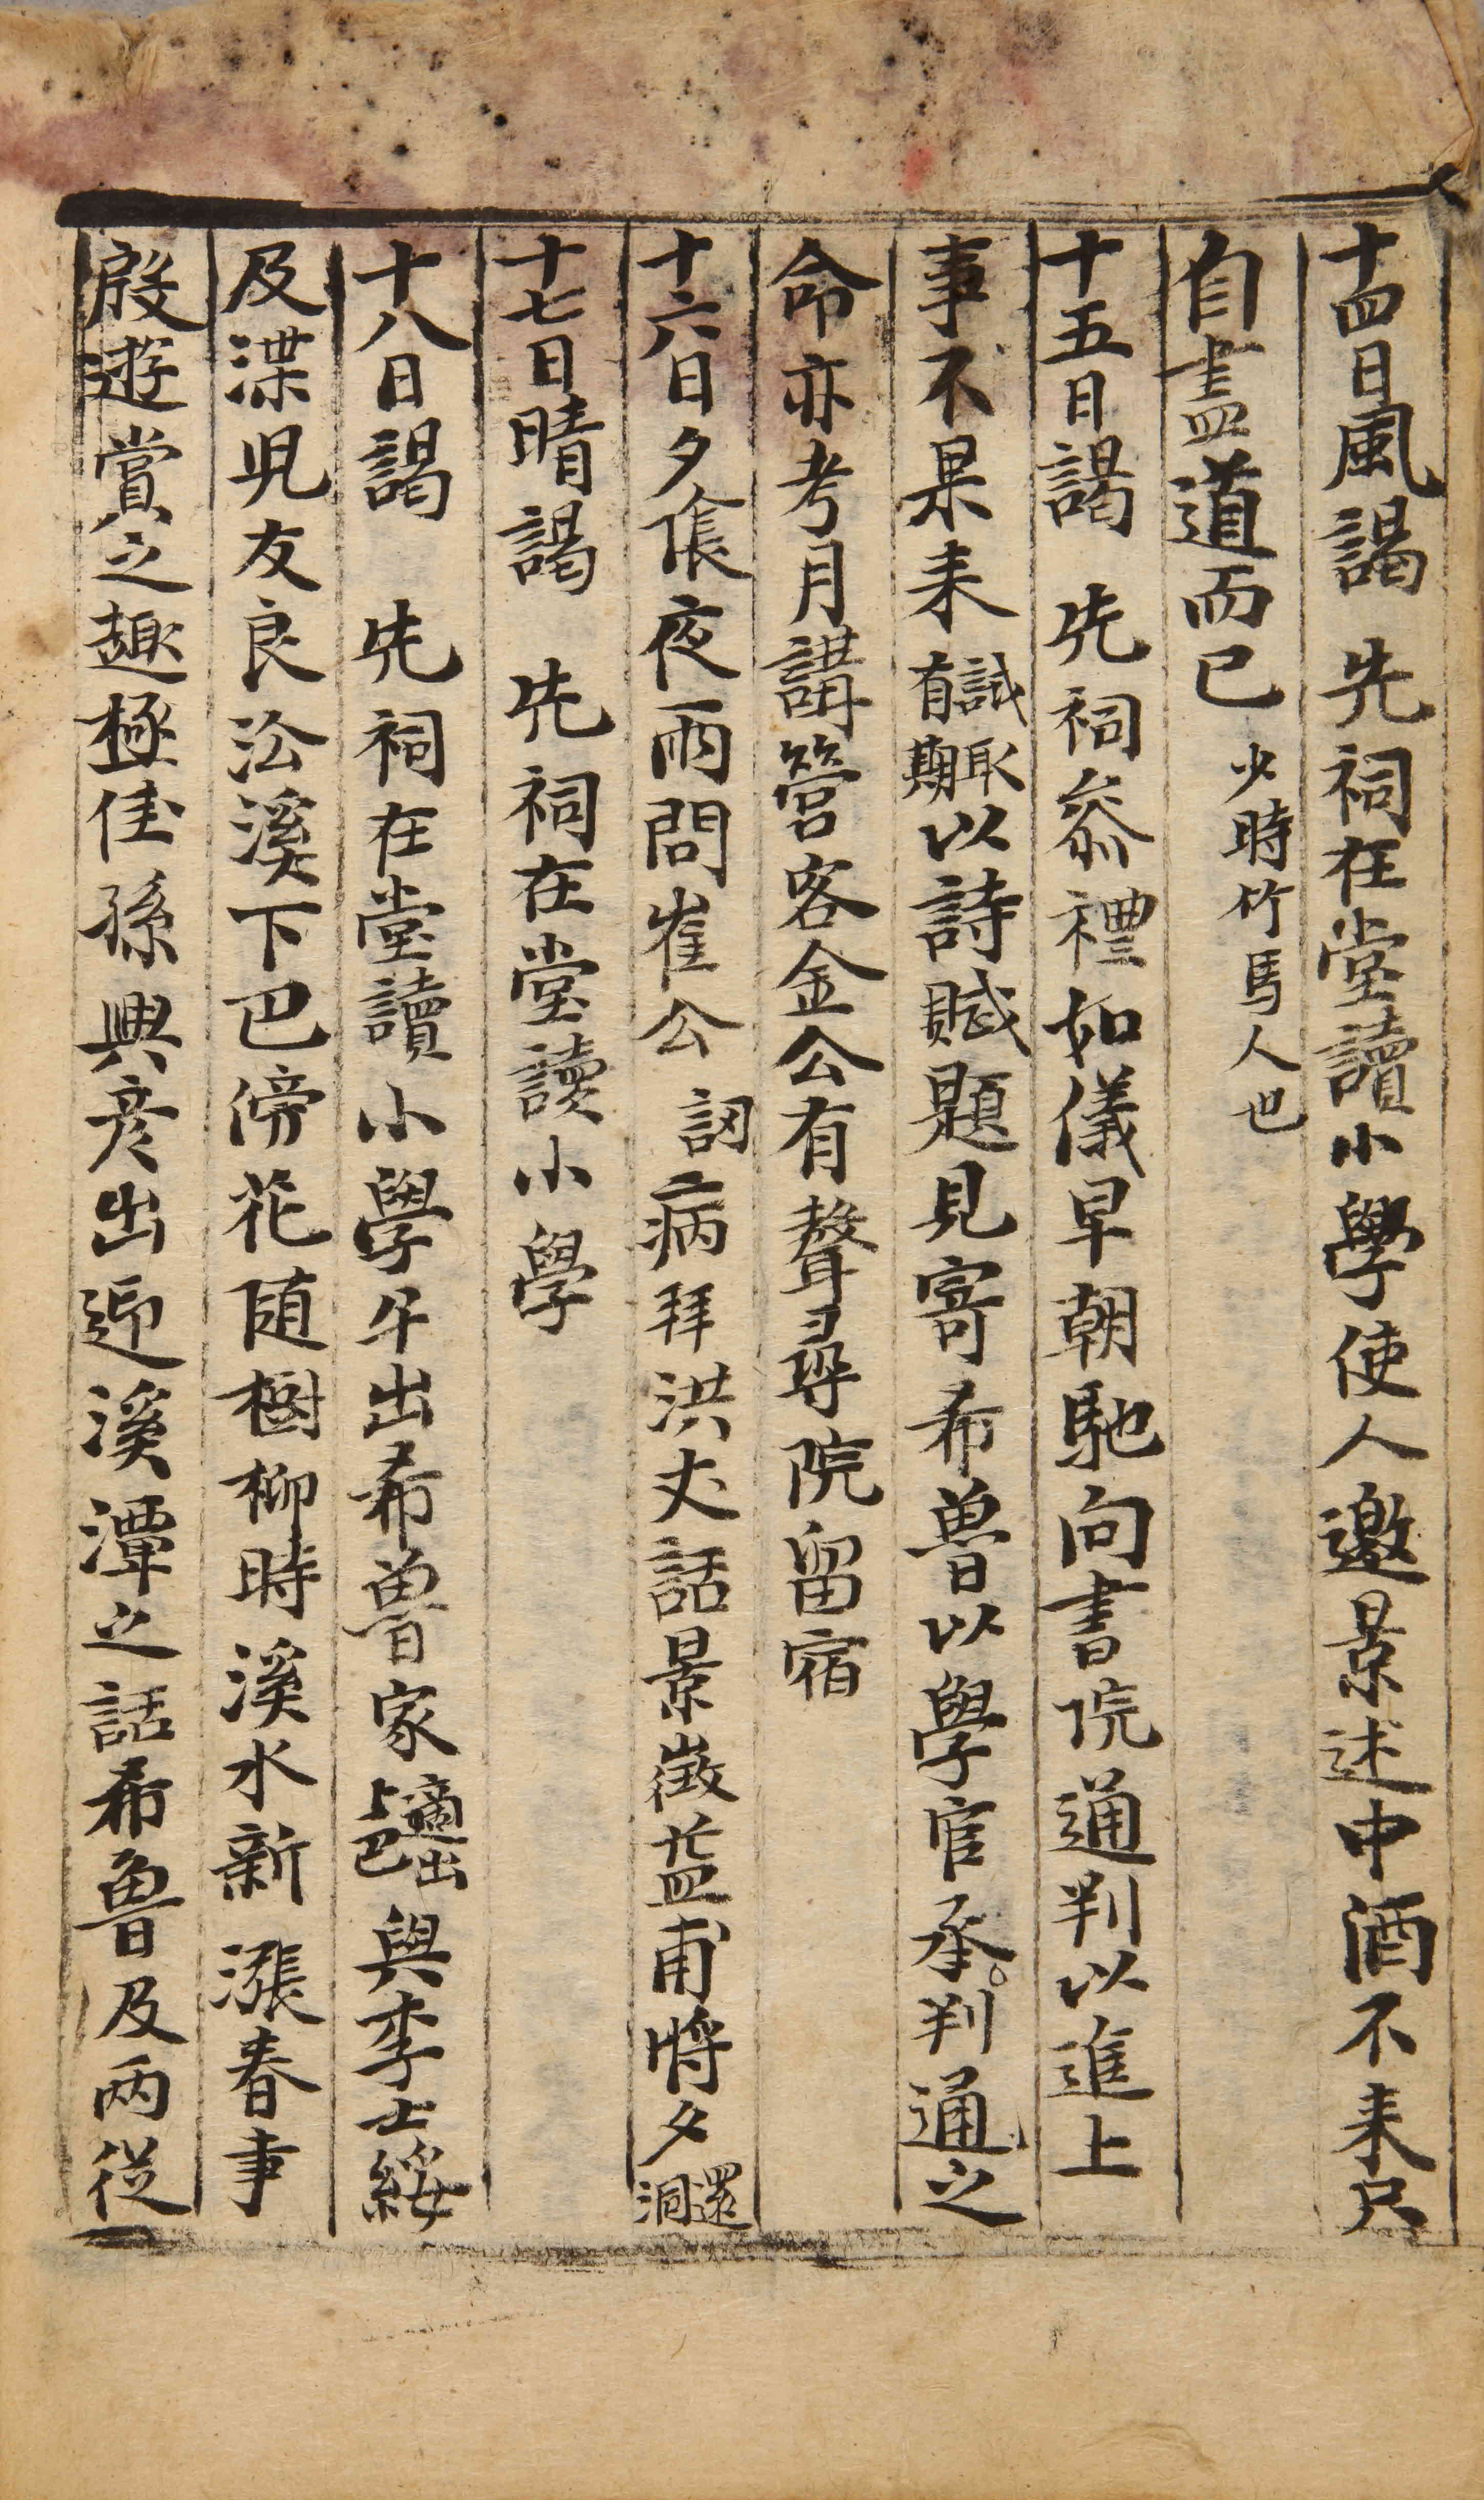 十四日風謁 先祠在堂讀小學使人邀景述中酒不来只
自盡道而已 少時竹馬人也
十五日謁 先祠叅禮如儀早朝馳向書院通判以進上
事不果来 試取有期 以詩賦題見寄希魯以學官承判通之
命亦考月講營客金公有聲尋院留宿
十六日夕倀夜雨問崔公 訒 病拜洪丈話景徵益甫將夕 還洞
十七日晴謁 先祠在堂讀小學
十八日謁 先祠在堂讀小學午出希魯家 適出上巴 與李士綏
及渫児友良沿溪下巴傍花随樹柳時溪水新漲春事
殷遊賞之趣極佳孫興彦出迎溪潭之話希魯及两従